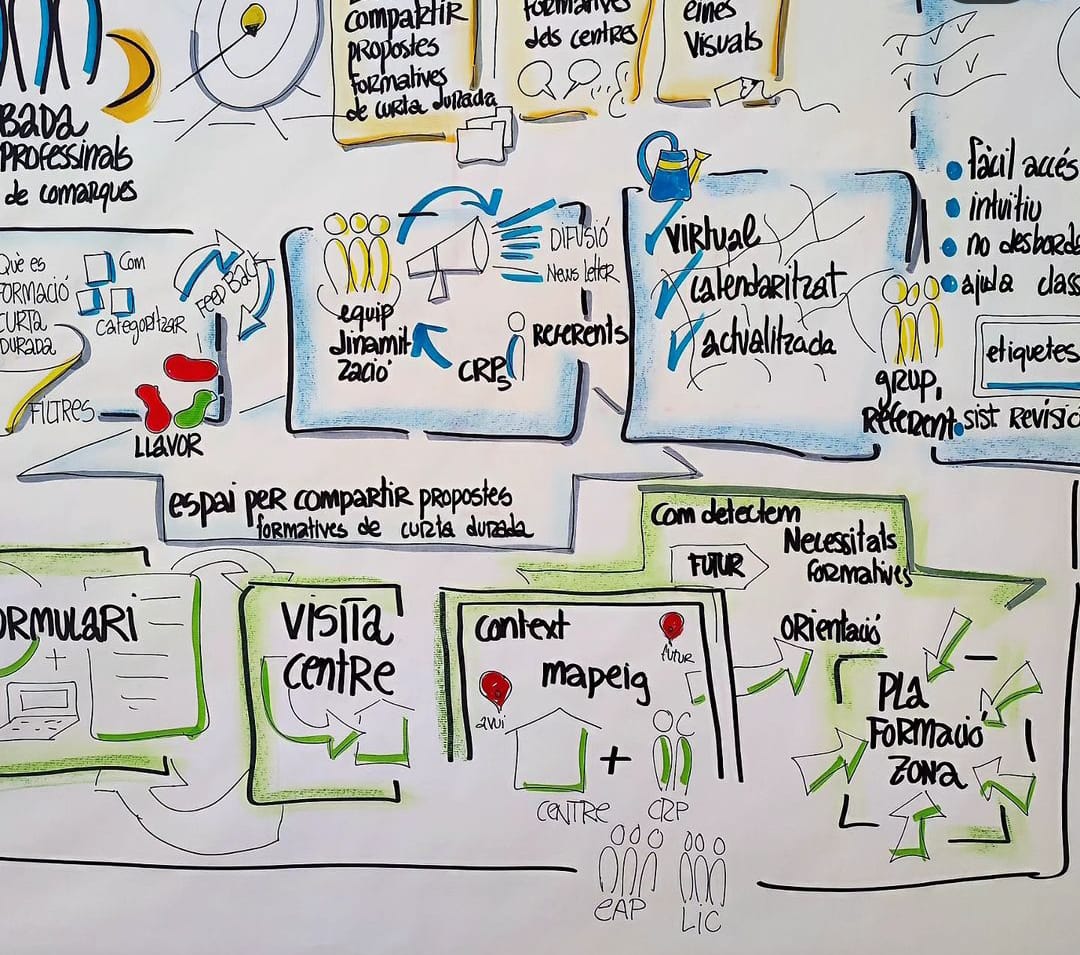 compartir
propostes
formatives
de curta durada
formatives
dels centres
eines
visuals
BADA
PROFESSINALS
de comarques
Què es
FORMACIÓ
CURTA
DURADA
Com
categoritzar
FEED BACK
FILTRES
LLAVOR
equip
dinamit
zació
DIFUSIÓ
News letter
CRPs
REFERENTS
virtual
calendaritzat
actualitzada
grup,
REFERENT
• fàcil accés
• intuïtiu
• no desborda
• ajuda class
etiquetes
• sist REVISIÓ
espai per compartir propostes
formatives de curta durada
Com detectem
Necessitats
formatives
FUTUR
ORMULARI
+
VISITA
CENTRE
context
mapeig
avui
futur
+
CENTRE
CRP
EAP
LIC
ORIENTACIÓ
PLA
FORMACIÓ
ZONA